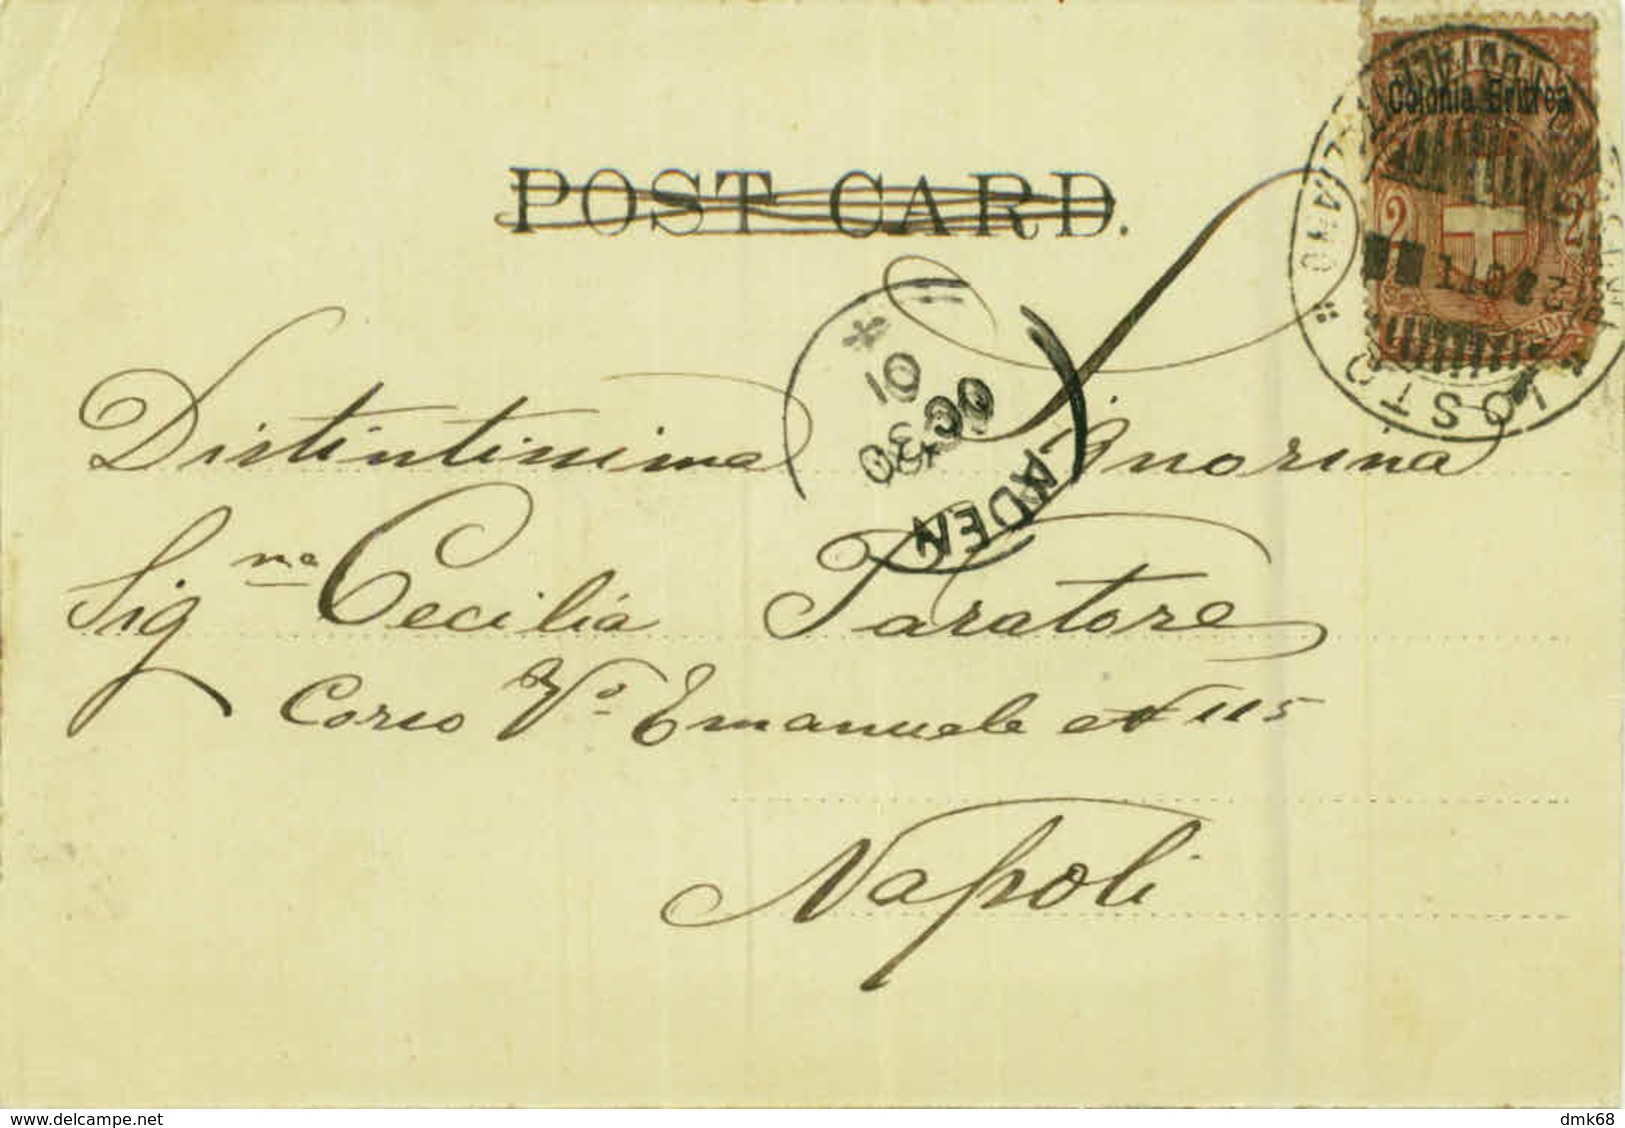 Colonia Eritrea
2 2
POST CARD.
01
OC 30
ADEN
Distintissima Signorina
Sig.na Cecilia Paratore
Corso Vo. Emanuele 115
Napoli
www.delcampe.net
dmk68